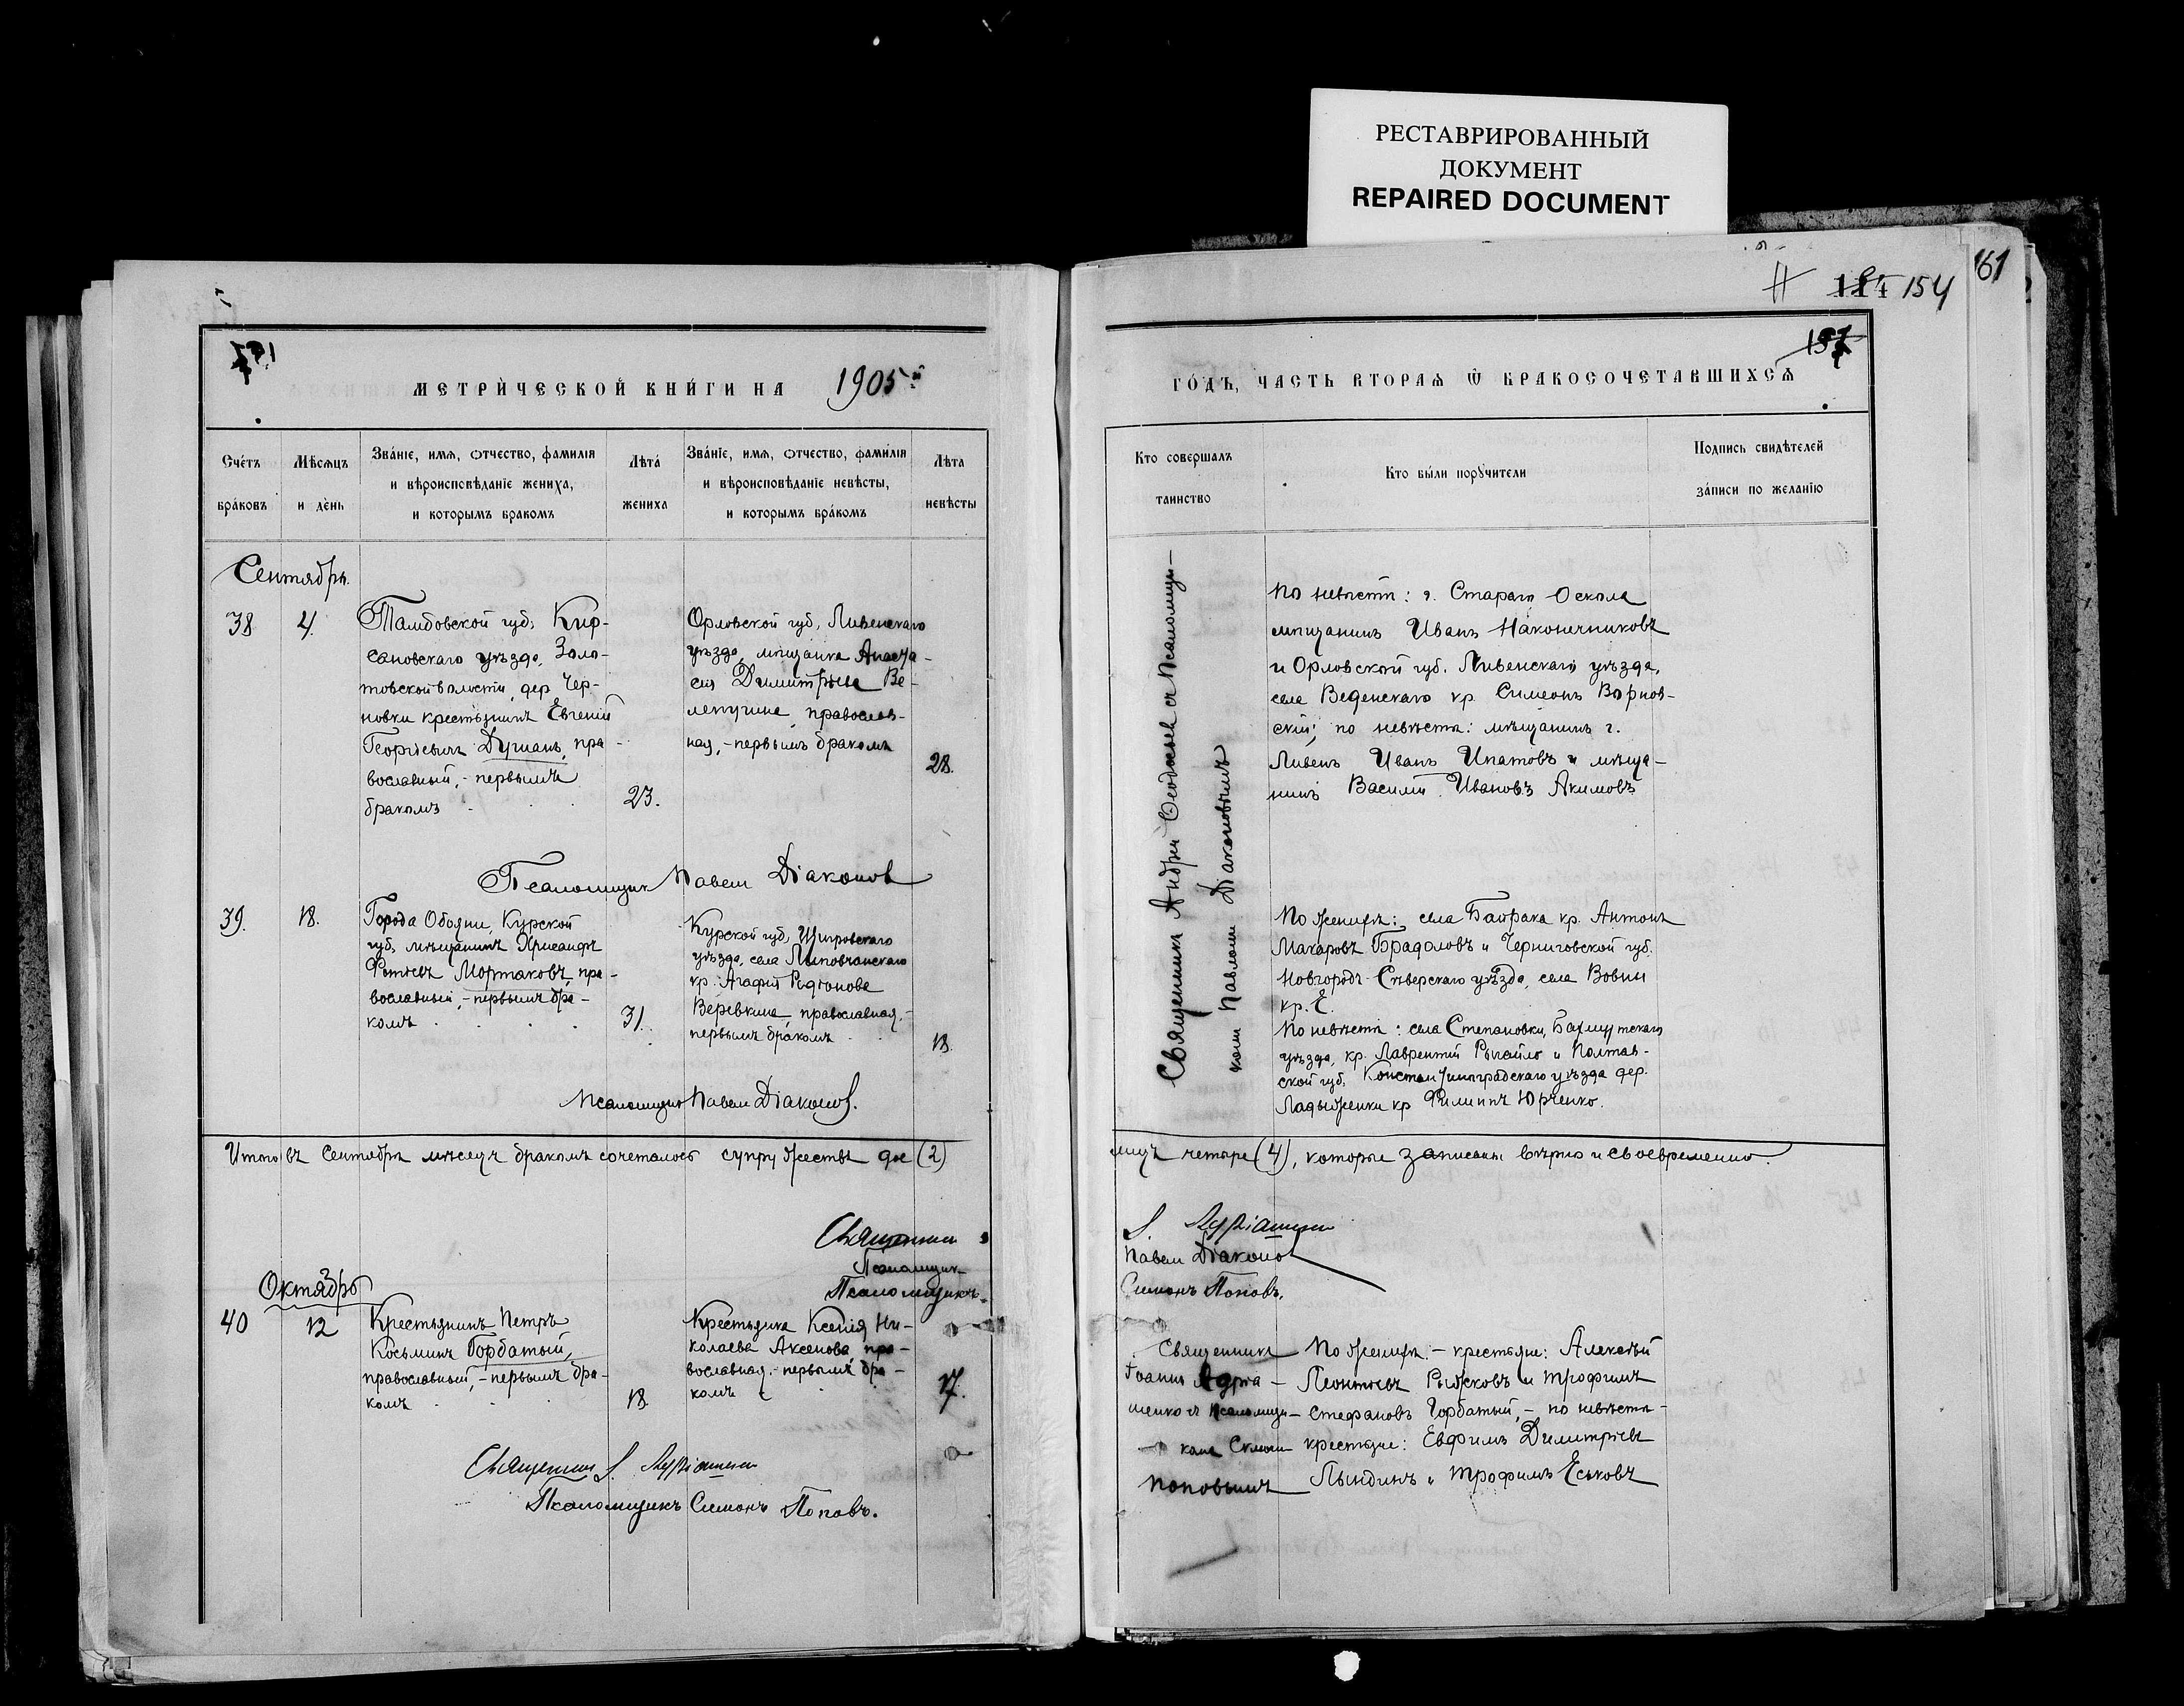 РЕСТАВРИРОВАННЫЙ
ДОКУМЕНТ
REPAIRED DOCUMENT
161
154
157
МЕТРИ́ЧЕСКОЙ КНИ́ГИ НА 1905й
Счетъ
бра́ковъ
Мѣсѧцъ
и де́нь
Зва́нїе, имѧ, ѻтчество, фамилїѧ
и вѣроисповѣданїе жениха,
и которымъ бракомъ
Лѣта́
жениха
Зва́нїе, имѧ, ѻтчество, фамилїѧ
и вѣроисповѣданїе невѣсты,
и которымъ бра́комъ
Лѣта
невѣсты
Сентябрь.
38
4.
Тамбовской губ, Кир-
сановскаго уѣзда, Золо-
товской волости, дер. Чер-
новки крестьянинъ Евгеній
Георгіевичъ Душанъ, пра-
вославный, - первымъ
бракомъ
23.
Орловской губ, Ливенскаго
уѣзда, мѣщанка Анаста-
сія Димитріева Ве-
лепугина, православ-
ная, - первымъ бракомъ
28.
Псаломщик Павел Діаконов
39.
18.
Города Обояни, Курской
губ, мѣщанинъ Хрисанфъ
Фотіевъ Мортаковъ, пра-
вославный, - первымъ бра-
комъ
31.
Курской губ, Щигровскаго
уѣзда, села Липовчанскаго
кр. Агафія Родіонова
Веревкина, православная, -
первымъ бракомъ
18.
Псаломщик Павел Діаконов.
Итого въ Сентябрѣ мѣсяцѣ бракомъ сочеталось супружествъ два (2)
Священник
Псаломщик
Псаломщикъ
Октябрь
40
12
Крестьянинъ Петръ
Косьминъ Горбатый,
православный, - первымъ бра-
комъ
18.
Крестьянка Ксенія Ни-
колаева Аксенова пра-
вославная, - первымъ бра-
комъ
17.
Священник І.
Псаломщикъ Симонъ Поповъ.
ГО́ДЪ, ЧАСТЬ ВТОРАѦ Ѿ БРАКОСОЧЕТАВШИХСѦ
Кто совершалъ
таинство
Кто бы́ли порꙋчители
Подпись свидѣтелей
за́писи по желанїю
Священникъ Андрей Ѳеодосьевъ съ Псаломщи-
комъ Павломъ Діаконовымъ
По невѣстѣ: г. Стараго Оскола
мѣщанинъ Иванъ Наконечниковъ
и Орловской губ. Ливенскаго уѣзда,
села Веденскаго кр. Симеонъ Варнов-
скій; по невѣстѣ: мѣщанинъ г.
Ливенъ Иванъ Ипатовъ и мѣща-
нинъ Василій Ивановъ Акимовъ
По женихѣ: села Байрака кр. Антонъ
Макаровъ Брадоловъ и Черниговской губ.
Новгородъ-Сѣверскаго уѣзда, села Вовны
кр. Е.
По невѣстѣ: села Степановки, Бахмутскаго
уѣзда, кр. Лаврентій Рыгайло и Полтав-
ской губ, Константиноградскаго уѣзда дер.
Ладыженки кр Филиппъ Юрченко.
лицъ четыре (4), которые записаны вѣрно и своевременно.
І.
Павел Діаконов
Симонъ Поповъ.
Священникъ
Іоаннъ Адріа-
шенко съ псаломщи-
комъ Симон
Поповымъ
По женихѣ: - крестьяне: Алексѣй
Леонтьевъ Рыжковъ и Трофимъ
Стефановъ Горбатый, - по невѣстѣ -
крестьяне: Евфимъ Димитріевъ
Лындинъ и Трофимъ Еськовъ